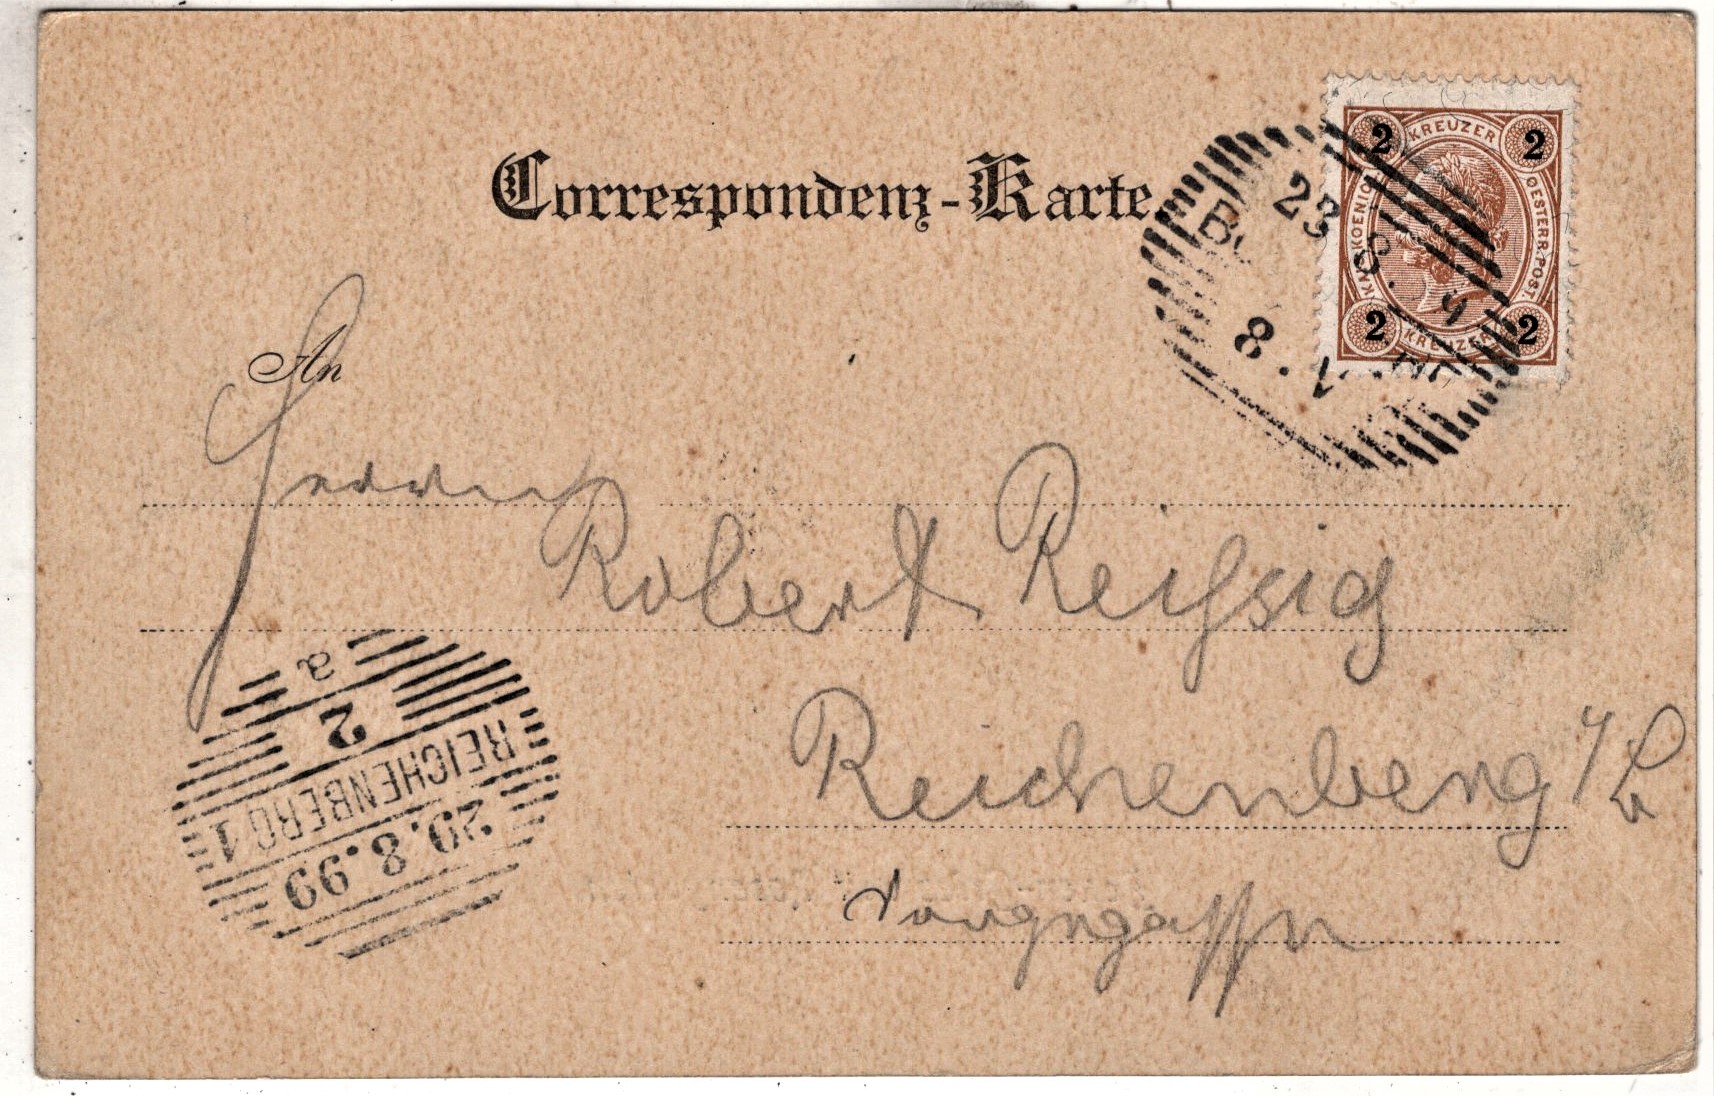 Correspondenz-Karte.
2 KREUZER 2
OESTERR. POST.
2 KREUZER 2
23 8 9
8. V
An
Herrn
Robert Reißig
Reichenberg i/B
a
2
REICHENBERG 1
29.8.99